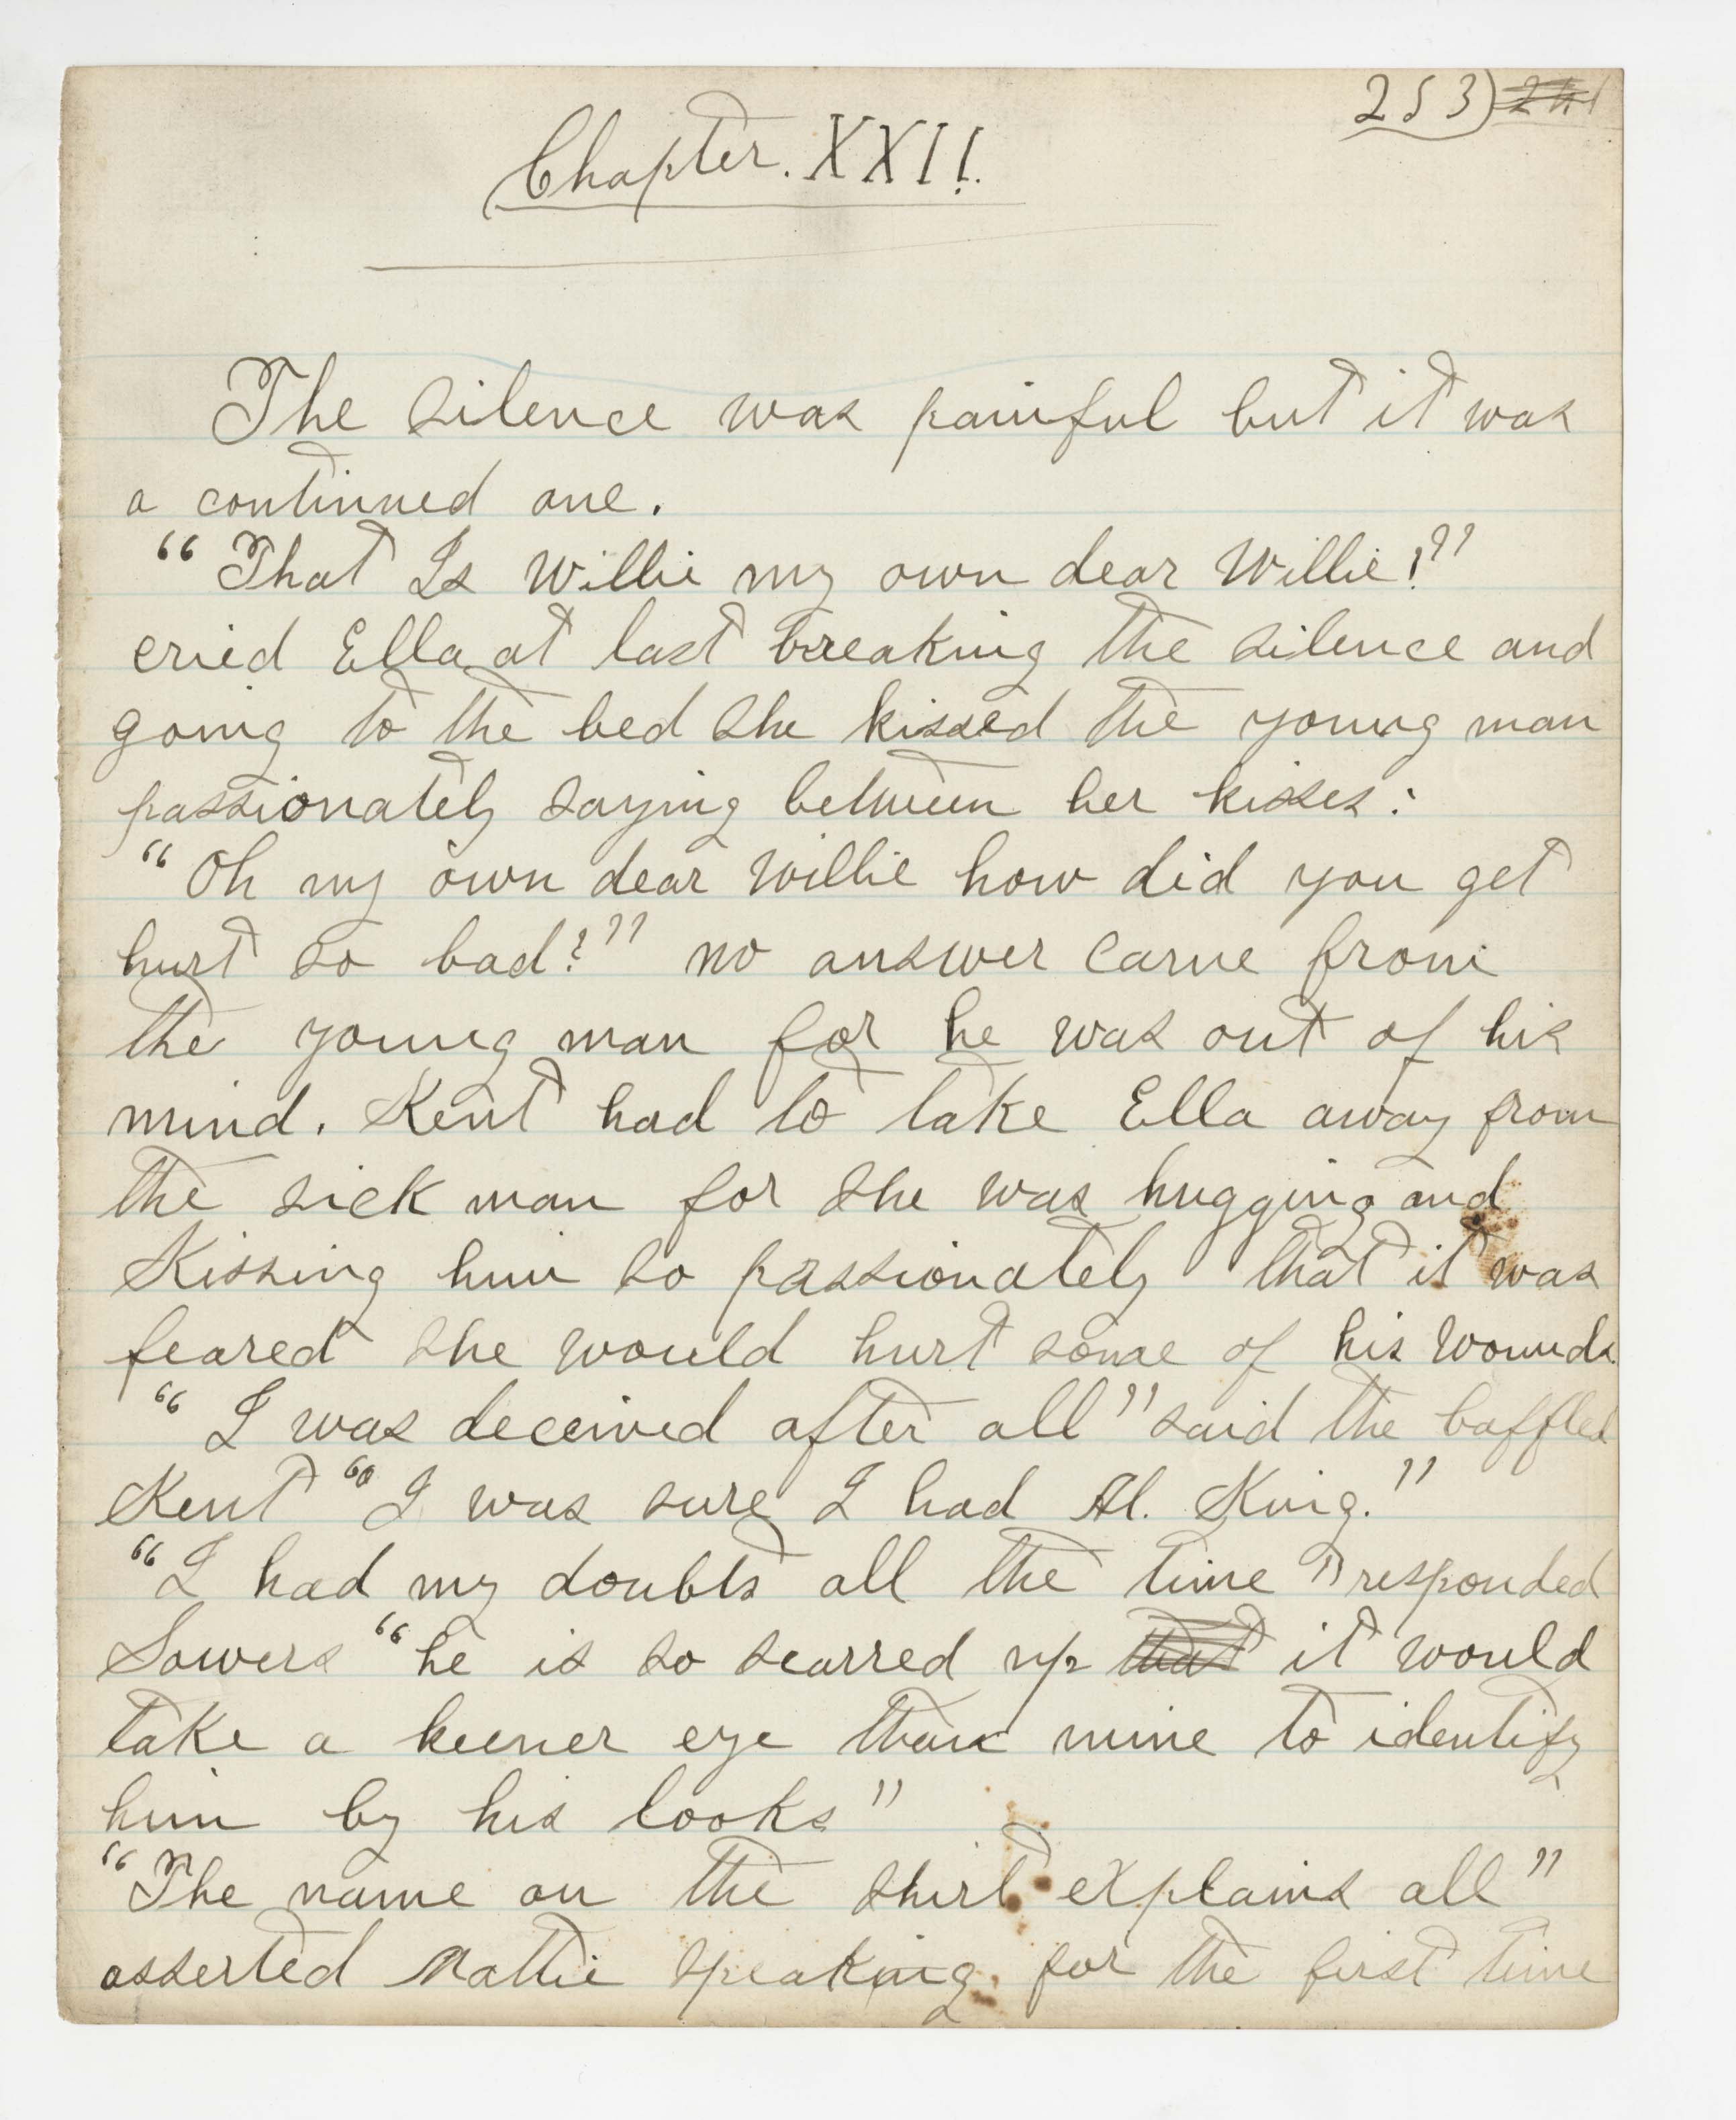 253)
Chapter. XXII.
The silence was painful but it was
a continued one.
"That Is Willie my own dear Willie!"
cried Ella at last breaking the silence and
going to the bed she kissed the young man
passionately saying between her kisses:
"Oh my own dear Willie how did you get
hurt so bad?" no answer came from
the young man for he was out of his
mind. Kent had to take Ella away from
the sick man for she was hugging and
Kissing him so passionately that it was
feared she would hurt some of his wounds.
"I was deceived after all" said the baffled
Kent "I was sure I had Al. King."
"I had my doubts all the time" responded
Sowers "he is so scarred up that it would
take a keener eye than mine to identify
him by his looks"
"The name on the shirt explains all"
asserted Mattie speaking for the first time